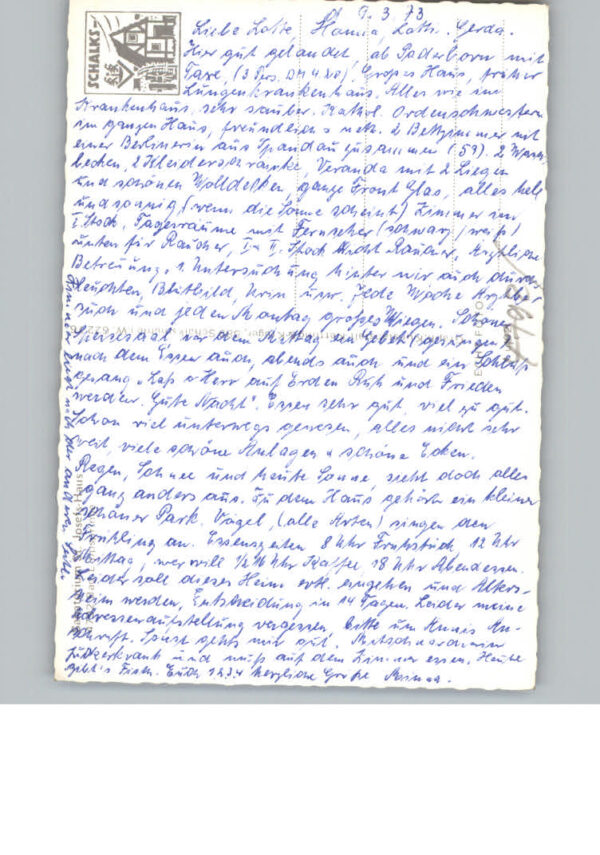 SCHALKS-
9.3.73
Liebe Lotte, Hanna, Lotti, Gerda.
Hier gut gelandet, ab Paderborn mit
Taxe, (3 Pers. DM 4.80), Großes Haus, früher
Lungenkrankenhaus. Alles wie im
Krankenhaus, sehr sauber. Kathol. Ordensschwestern
im ganzen Haus, freundlich u nett. 2 Bettzimmer mit
einer Berlinerin aus Spandau zusammen (59). 2 Wasch
becken, 2 Kleiderschränke, Veranda mit 2 Liegen
und schönen Wolldecken, ganze Front Glas, alles hell
und sonnig, (wenn die Sonne scheint) Zimmer im
I Stock, Tagesräume mit Fernseher (schwarz, weiß)
unten für Raucher, I u II. Stock Nicht Raucher, Ärztliche
Betreuung, 1. Untersuchung hinter mir auch durch
leuchten, Blutbild, Urin usw. Jede Woche Arzt be
such und jeden Montag großes Wiegen. Schöner
Speisesaal, vor dem Essen ein Gebet gesungen
nach dem Essen auch, abends auch und ein Schluß
gesang "Laß o Herr auf Erden Ruh und Frieden
werden. Gute Nacht". Essen sehr gut, viel zu gut.
Schon viel unterwegs gewesen, alles nicht sehr
weit, viele schöne Anlagen u schöne Ecken.
Regen, Schnee und heute Sonne, sieht doch alles
ganz anders aus. Zu dem Haus gehört ein kleiner
schöner Park. Vögel, (alle Arten) singen den
Frühling an. Essenszeiten 8 Uhr Frühstück 12 Uhr
Mittag, wer will 1/2 16 Uhr Kaffee 18 Uhr Abendessen.
Leider soll dieses Heim evtl. eingehen und Alters-
heim werden, Entscheidung in 14 Tagen. Leider meine
Adressenaufstellung vergessen, bitte um Annis An-
schrift. Sonst gehts mir gut.
zuckerkrank und muß auf dem Zimmer essen. Heute
gibt's Fisch. Euch herzliche Grüße
Josefs-Haus